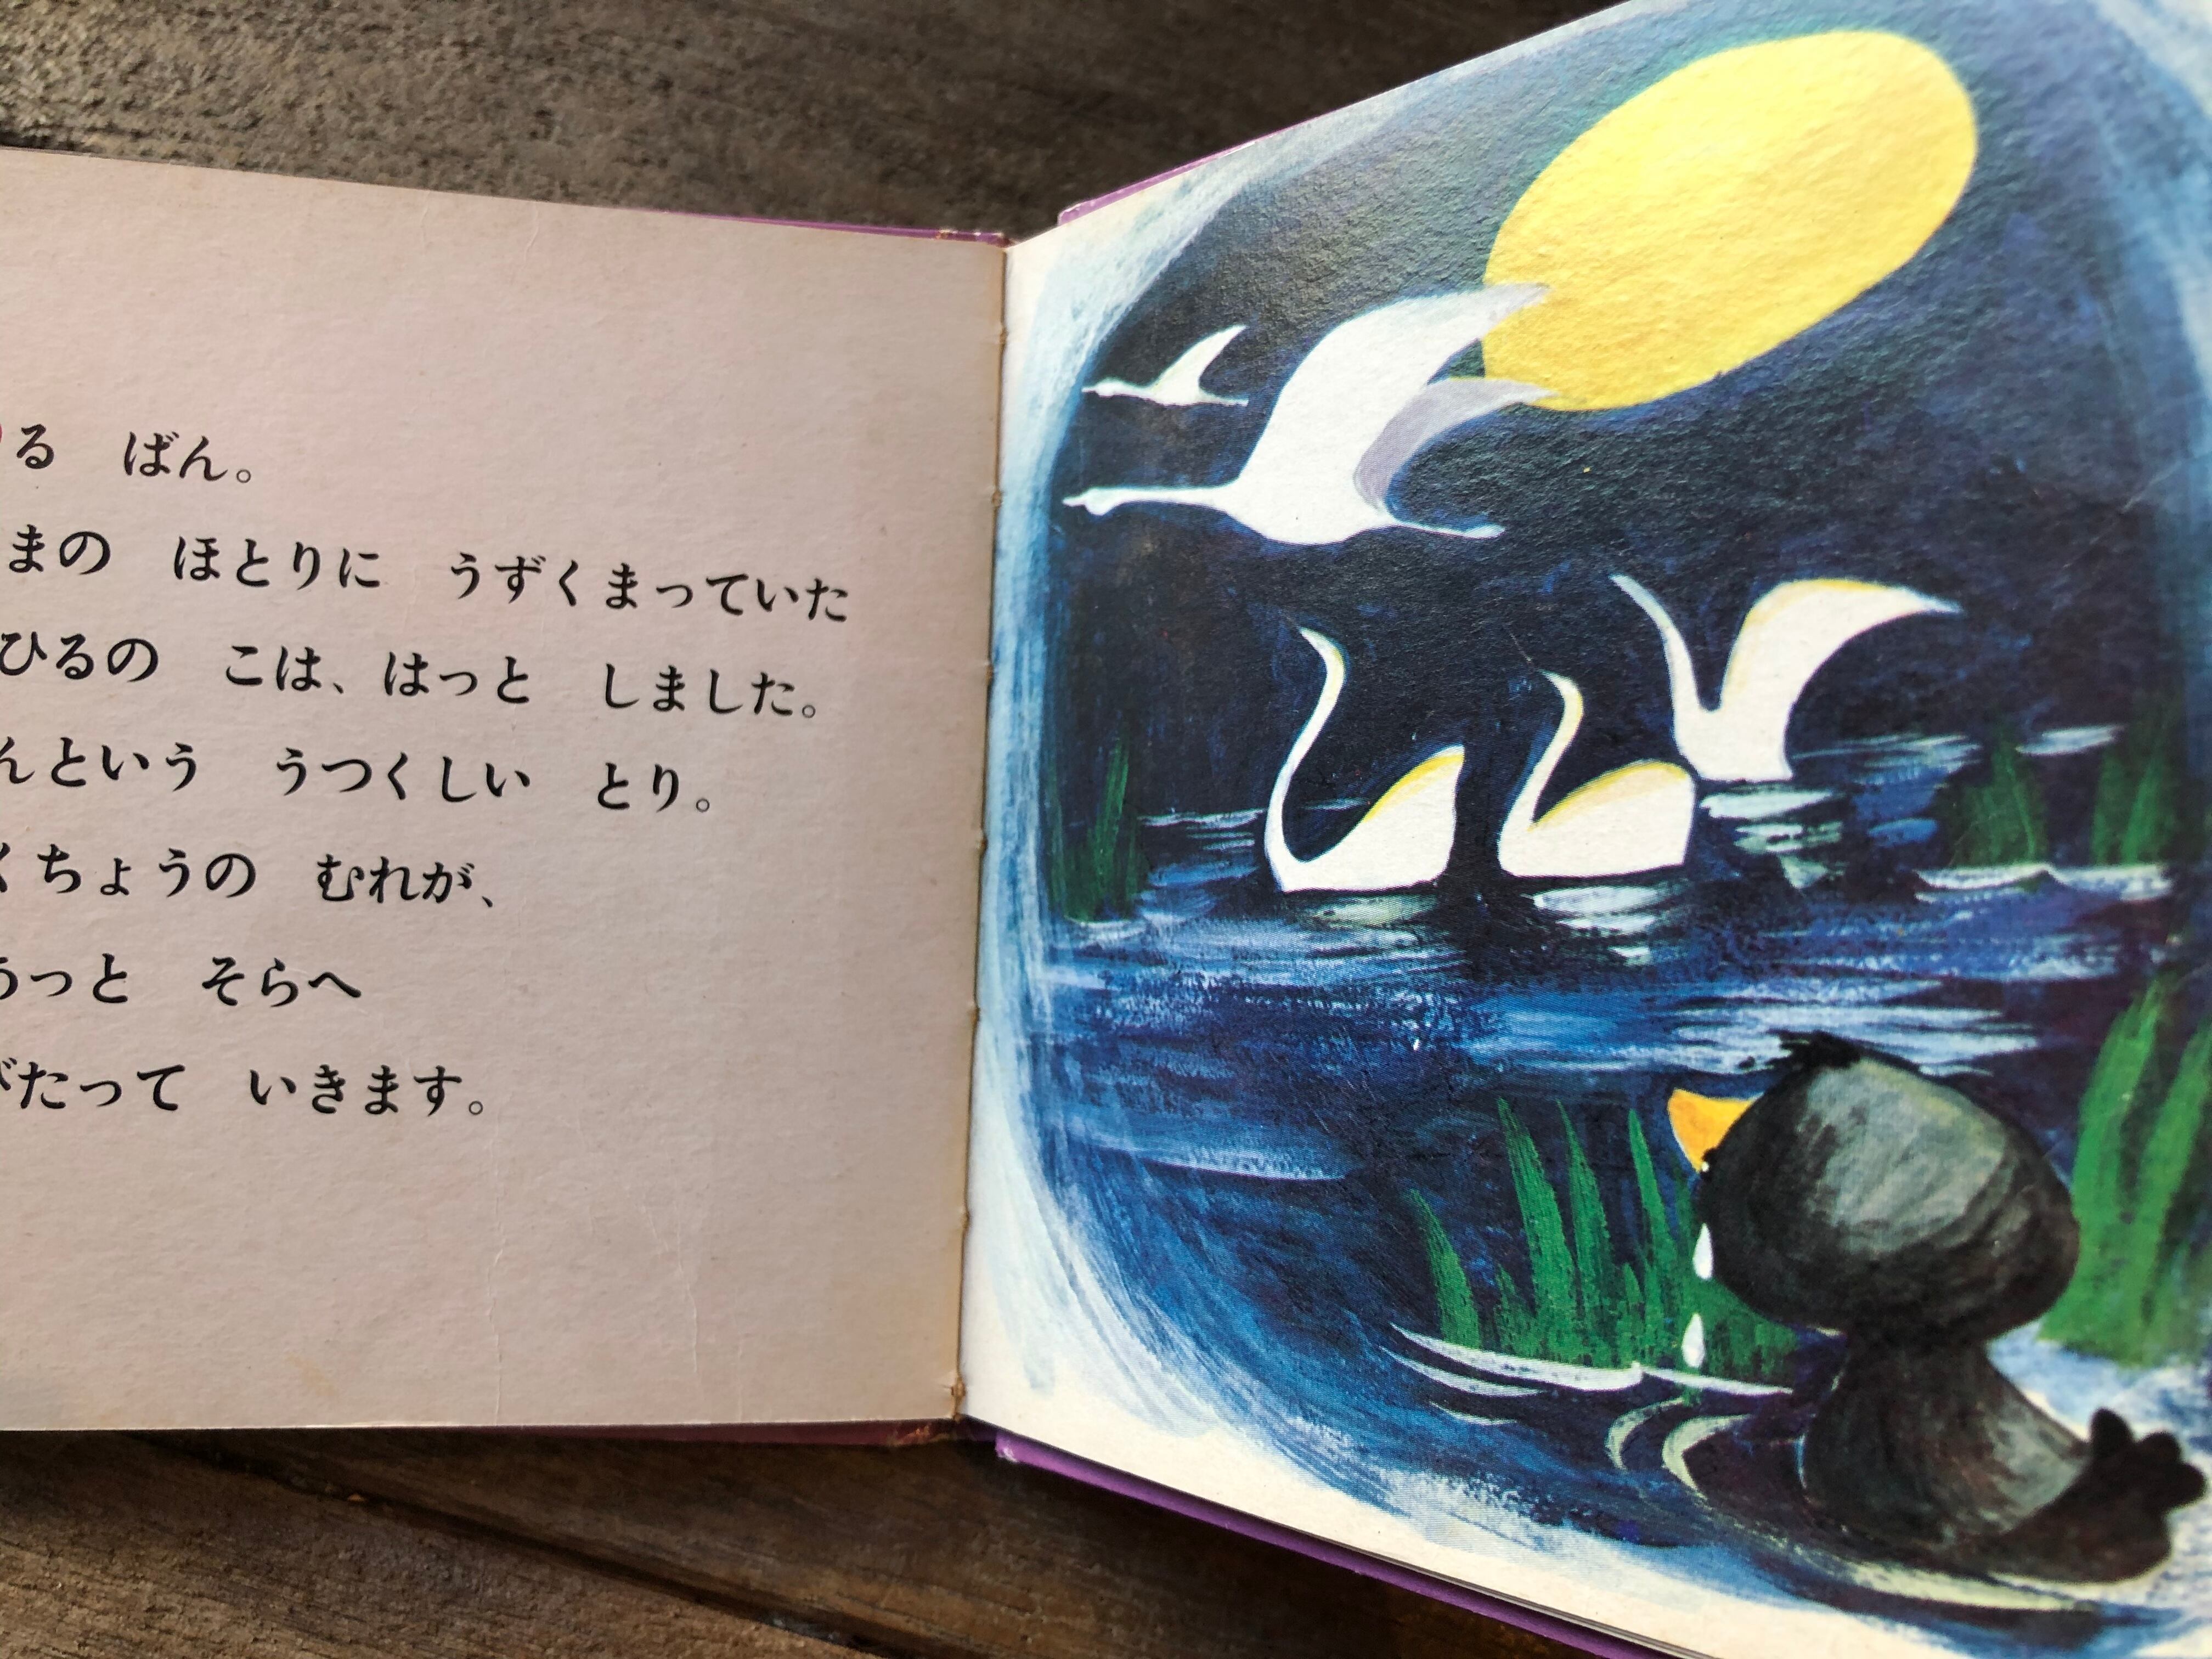 る ばん。
まの ほとりに うずくまっていた
ひるの こは、はっと しました。
んという うつくしい とり。
くちょうの むれが、
うっと そらへ
がたって いきます。